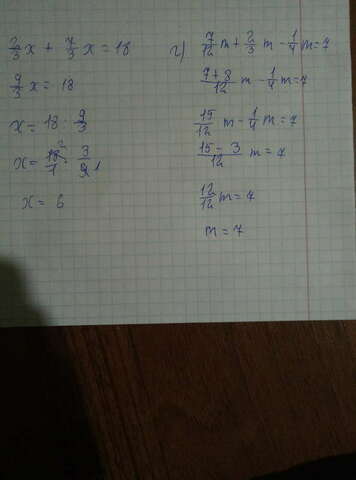 2/3 x + 7/3 x = 18
9/3 x = 18
x = 18 : 9/3
x = 18/1 · 3/9
x = 6
г) 7/12 m + 2/3 m - 1/4 m = 7
7+8/12 m - 1/4 m = 7
15/12 m - 1/4 m = 7
15-3/12 m = 7
12/12 m = 7
m = 7